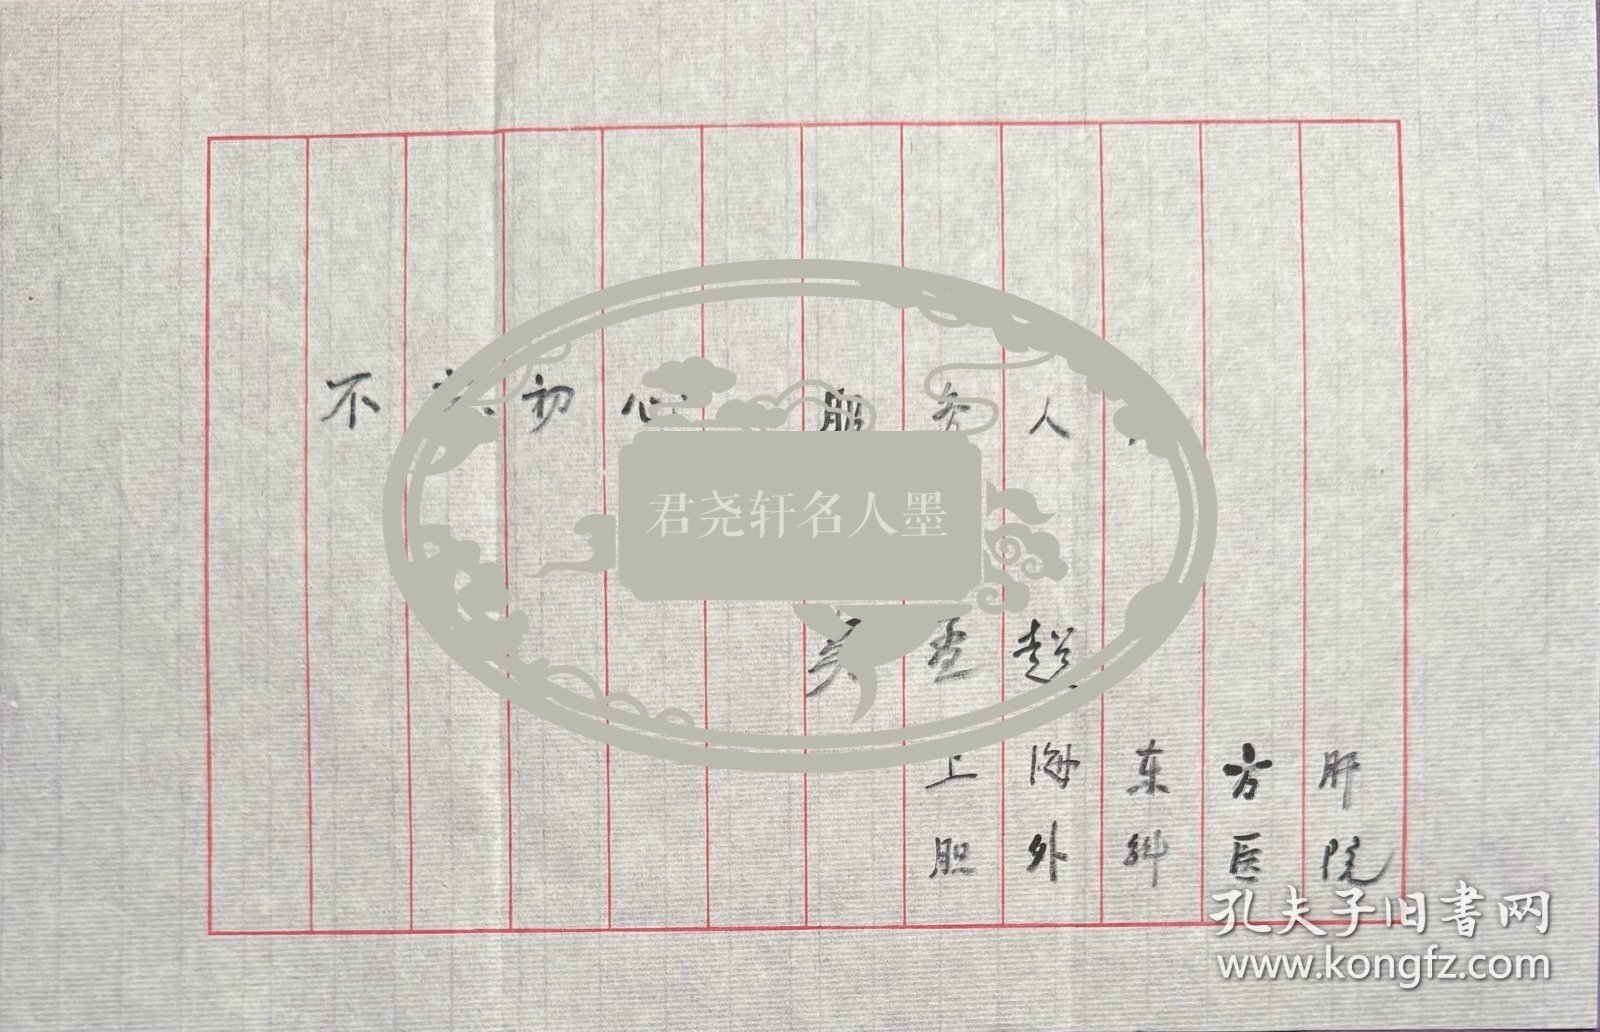 不 初 心 服 务 人
君尧轩名人墨
吴 孟 超
上 海 东 方 肝
胆 外 科 医 院
孔夫子旧书网
www.kongfz.com